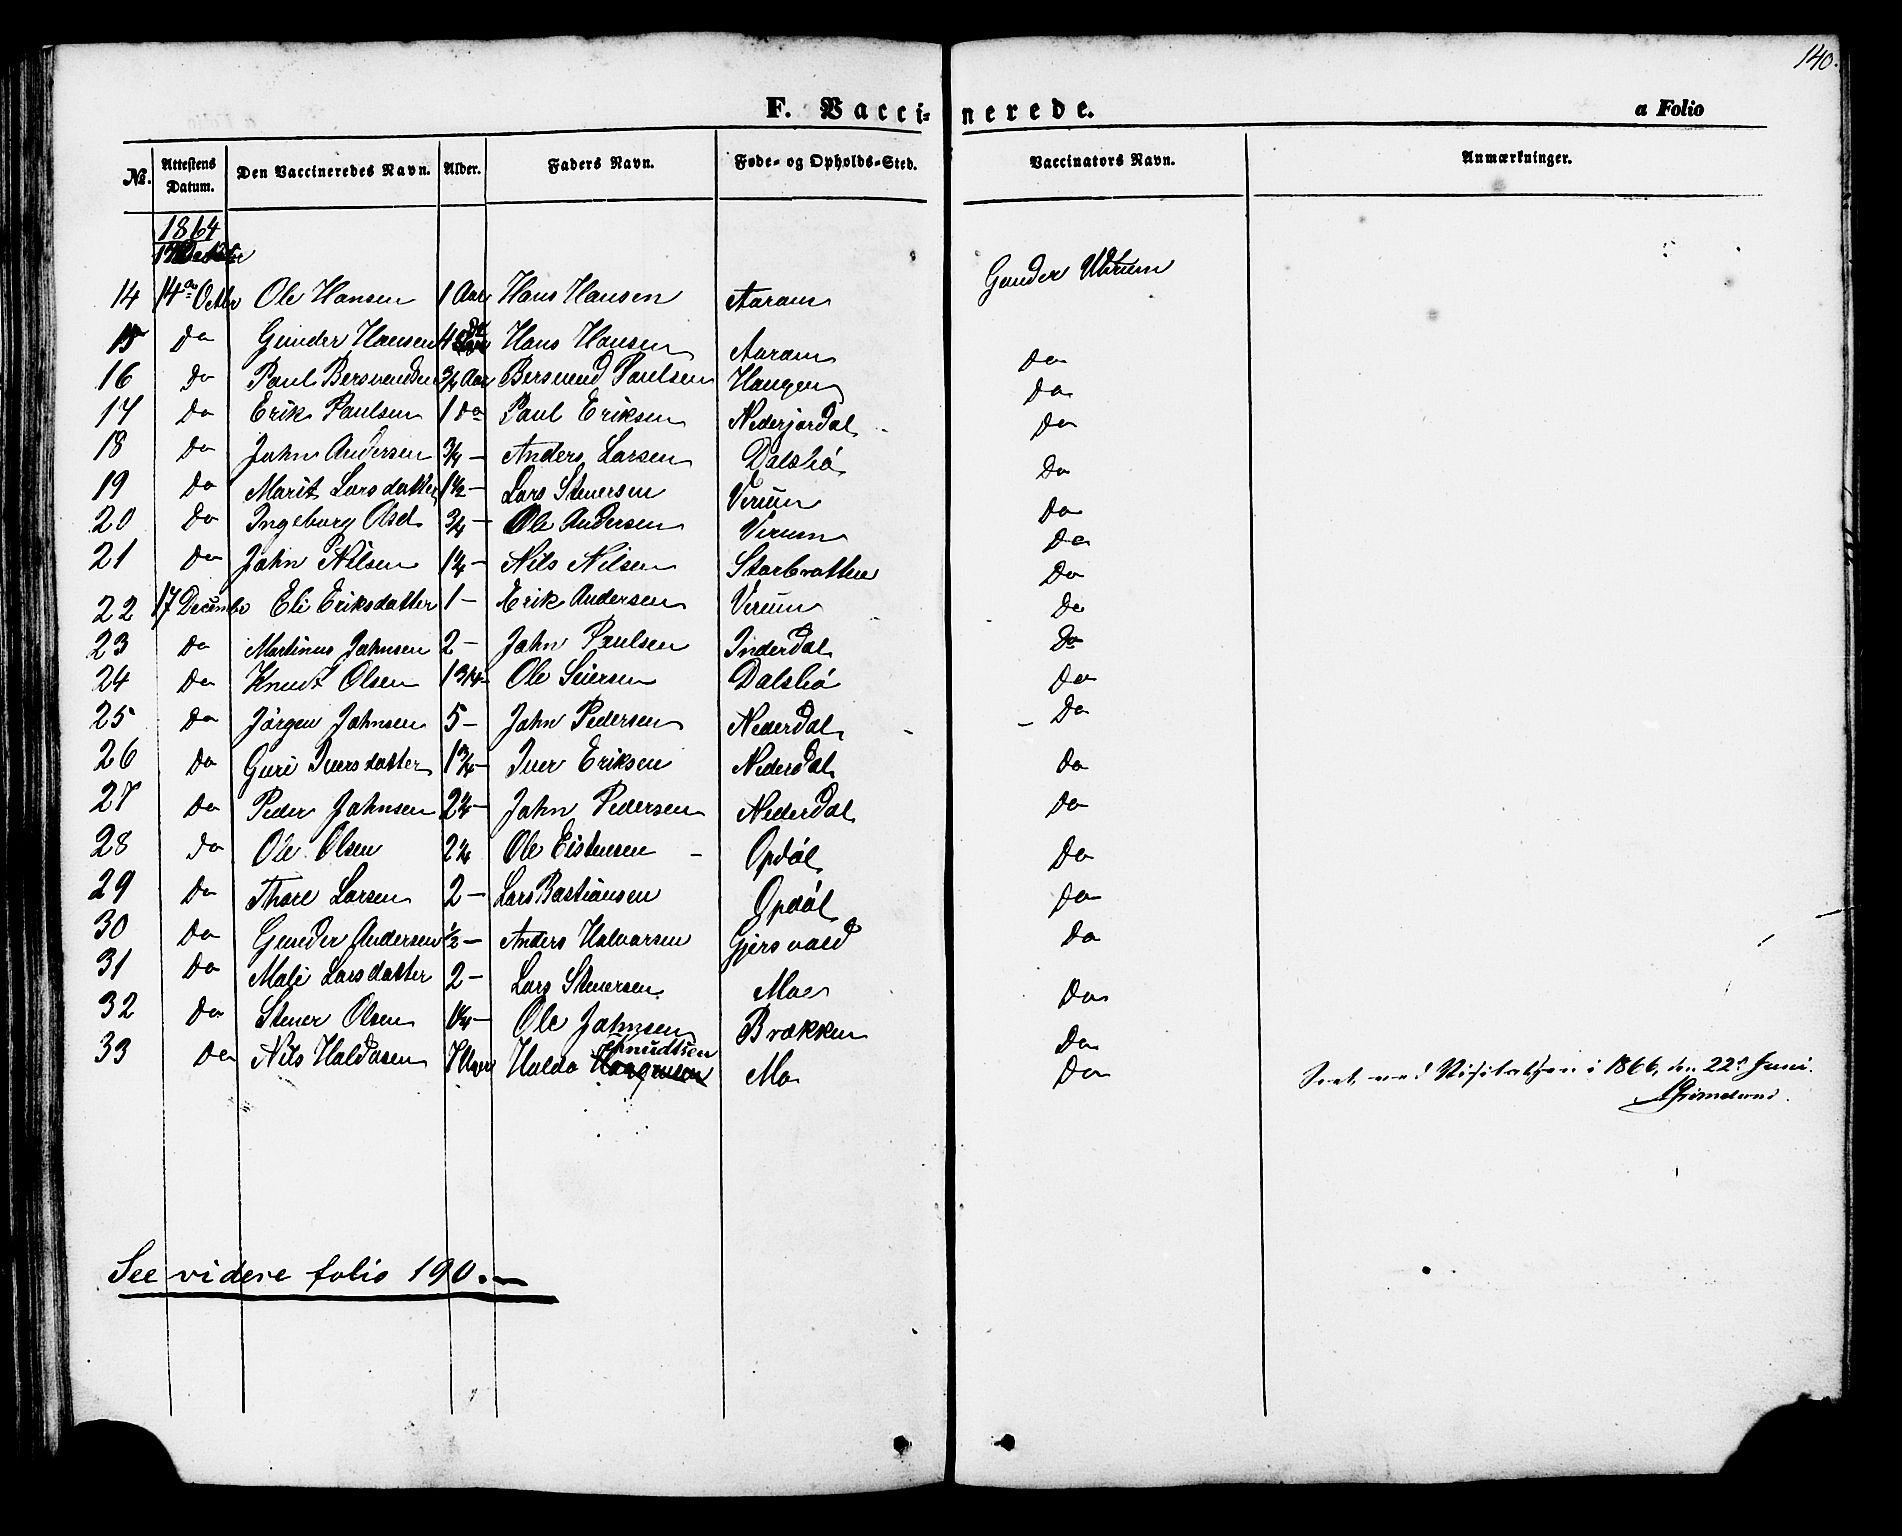 140.
F. Vaccinerede.
a Folio
No. Attestens Datum. Den Vaccineredes Navn. Alder. Faders Navn. Føde- og Opholds-Sted. Vaccinators Navn. Anmærkninger.
1864
14 14de Octbr Ole Hansen 1 Aar Hans Hansen Aaram Gunder Utrum
15 Do Gunder Hansen 4 Hans Hansen Aaram Do
16 Do Paul Bersvendsen 3/4 Aar Bersvend Paulsen Haugen Do
17 Do Erik Paulsen 1 Do Paul Eriksen Nederjordal Do
18 Do John Andersen 3/4 — Anders Larsen Dalslió Do
19 Do Marit Larsdatter 1 1/2 — Lars Stenersen Virum Do
20 Do Ingeborg Olsd. 3/4 — Ole Andersen Virum Do
21 Do John Nilsen 1 1/4 — Nils Nilsen Storbratten Do
22 17 Decembr Eli Eriksdatter 1 — Erik Andersen Virum Do
23 Do Martinus Johnsen 2 — John Paulsen Inderdal Do
24 Do Knut Olsen 1 3/4 Ole Seiersen Dalslió Do
25 Do Jörgen Johnsen 5 — John Pedersen Nederdal Do
26 Do Guri Iversdatter 1 3/4 — Iver Eriksen Nederdal Do
27 Do Peder Johnsen 2 1/4 — John Pedersen Nederdal Do
28 Do Ole Olsen 2 1/4 Ole Eistensen — Opdöl Do
29 Do Thore Larsen 2 — Lars Bastiansen Opdöl Do
30 Do Gunder Andersen 1/2 — Anders Halvorsen Gjersvold Do
31 Do Mali Larsdatter 2 — Lars Stenersen Moe Do
32 Do Stener Olsen 1 1/4 — Ole Johnsen Brækken Do
33 Do Nils Haldosen Haldo Knudtsen Mo Do
Seet ved Visitatsen i 1866, den 22de Juni.
See videre folio 190. —